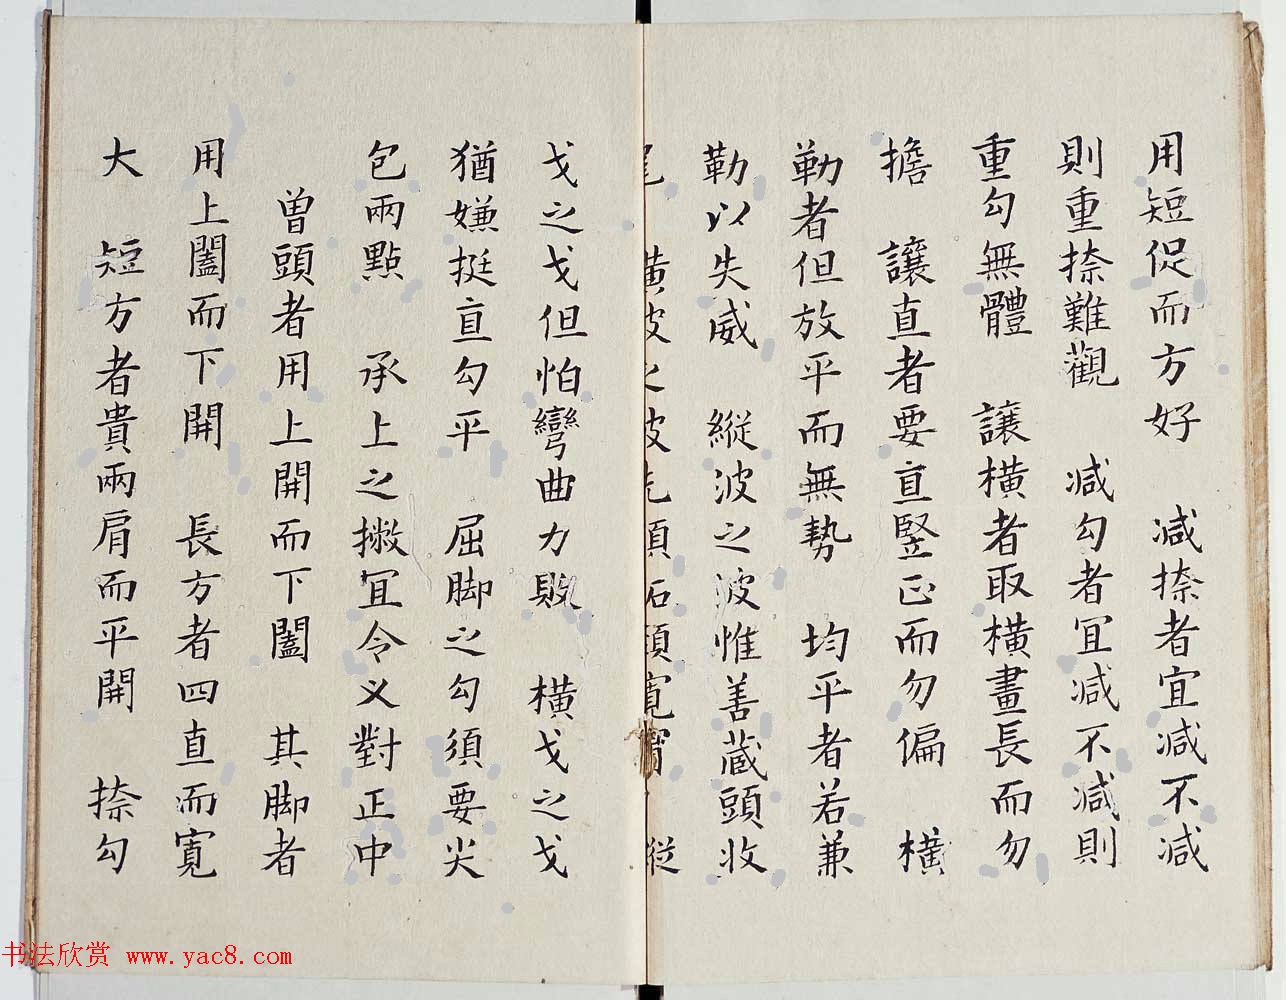 用短促而方好 減捺者宜減不減
則重捺難觀 減勾者冝減不減則
重勾無體 讓橫者取橫畫長而勿
擔 讓直者要直竪正而勿偏 橫
勒者但放平而無勢 均平者若兼
勒以失威 縱波之波惟善蔵頭收
尾 橫波之波先須拓頸寬胷 縱
戈之戈但怕彎曲力敗 橫戈之戈
猶嫌挺直勾平 屈脚之勾須要尖
包兩點 承上之撇冝令乂對正中
曽頭者用上開而下闔 其脚者
用上闔而下開 長方者四直而寬
大 短方者貴兩肩而平開 捺勾
书法欣赏 www.yac8.com